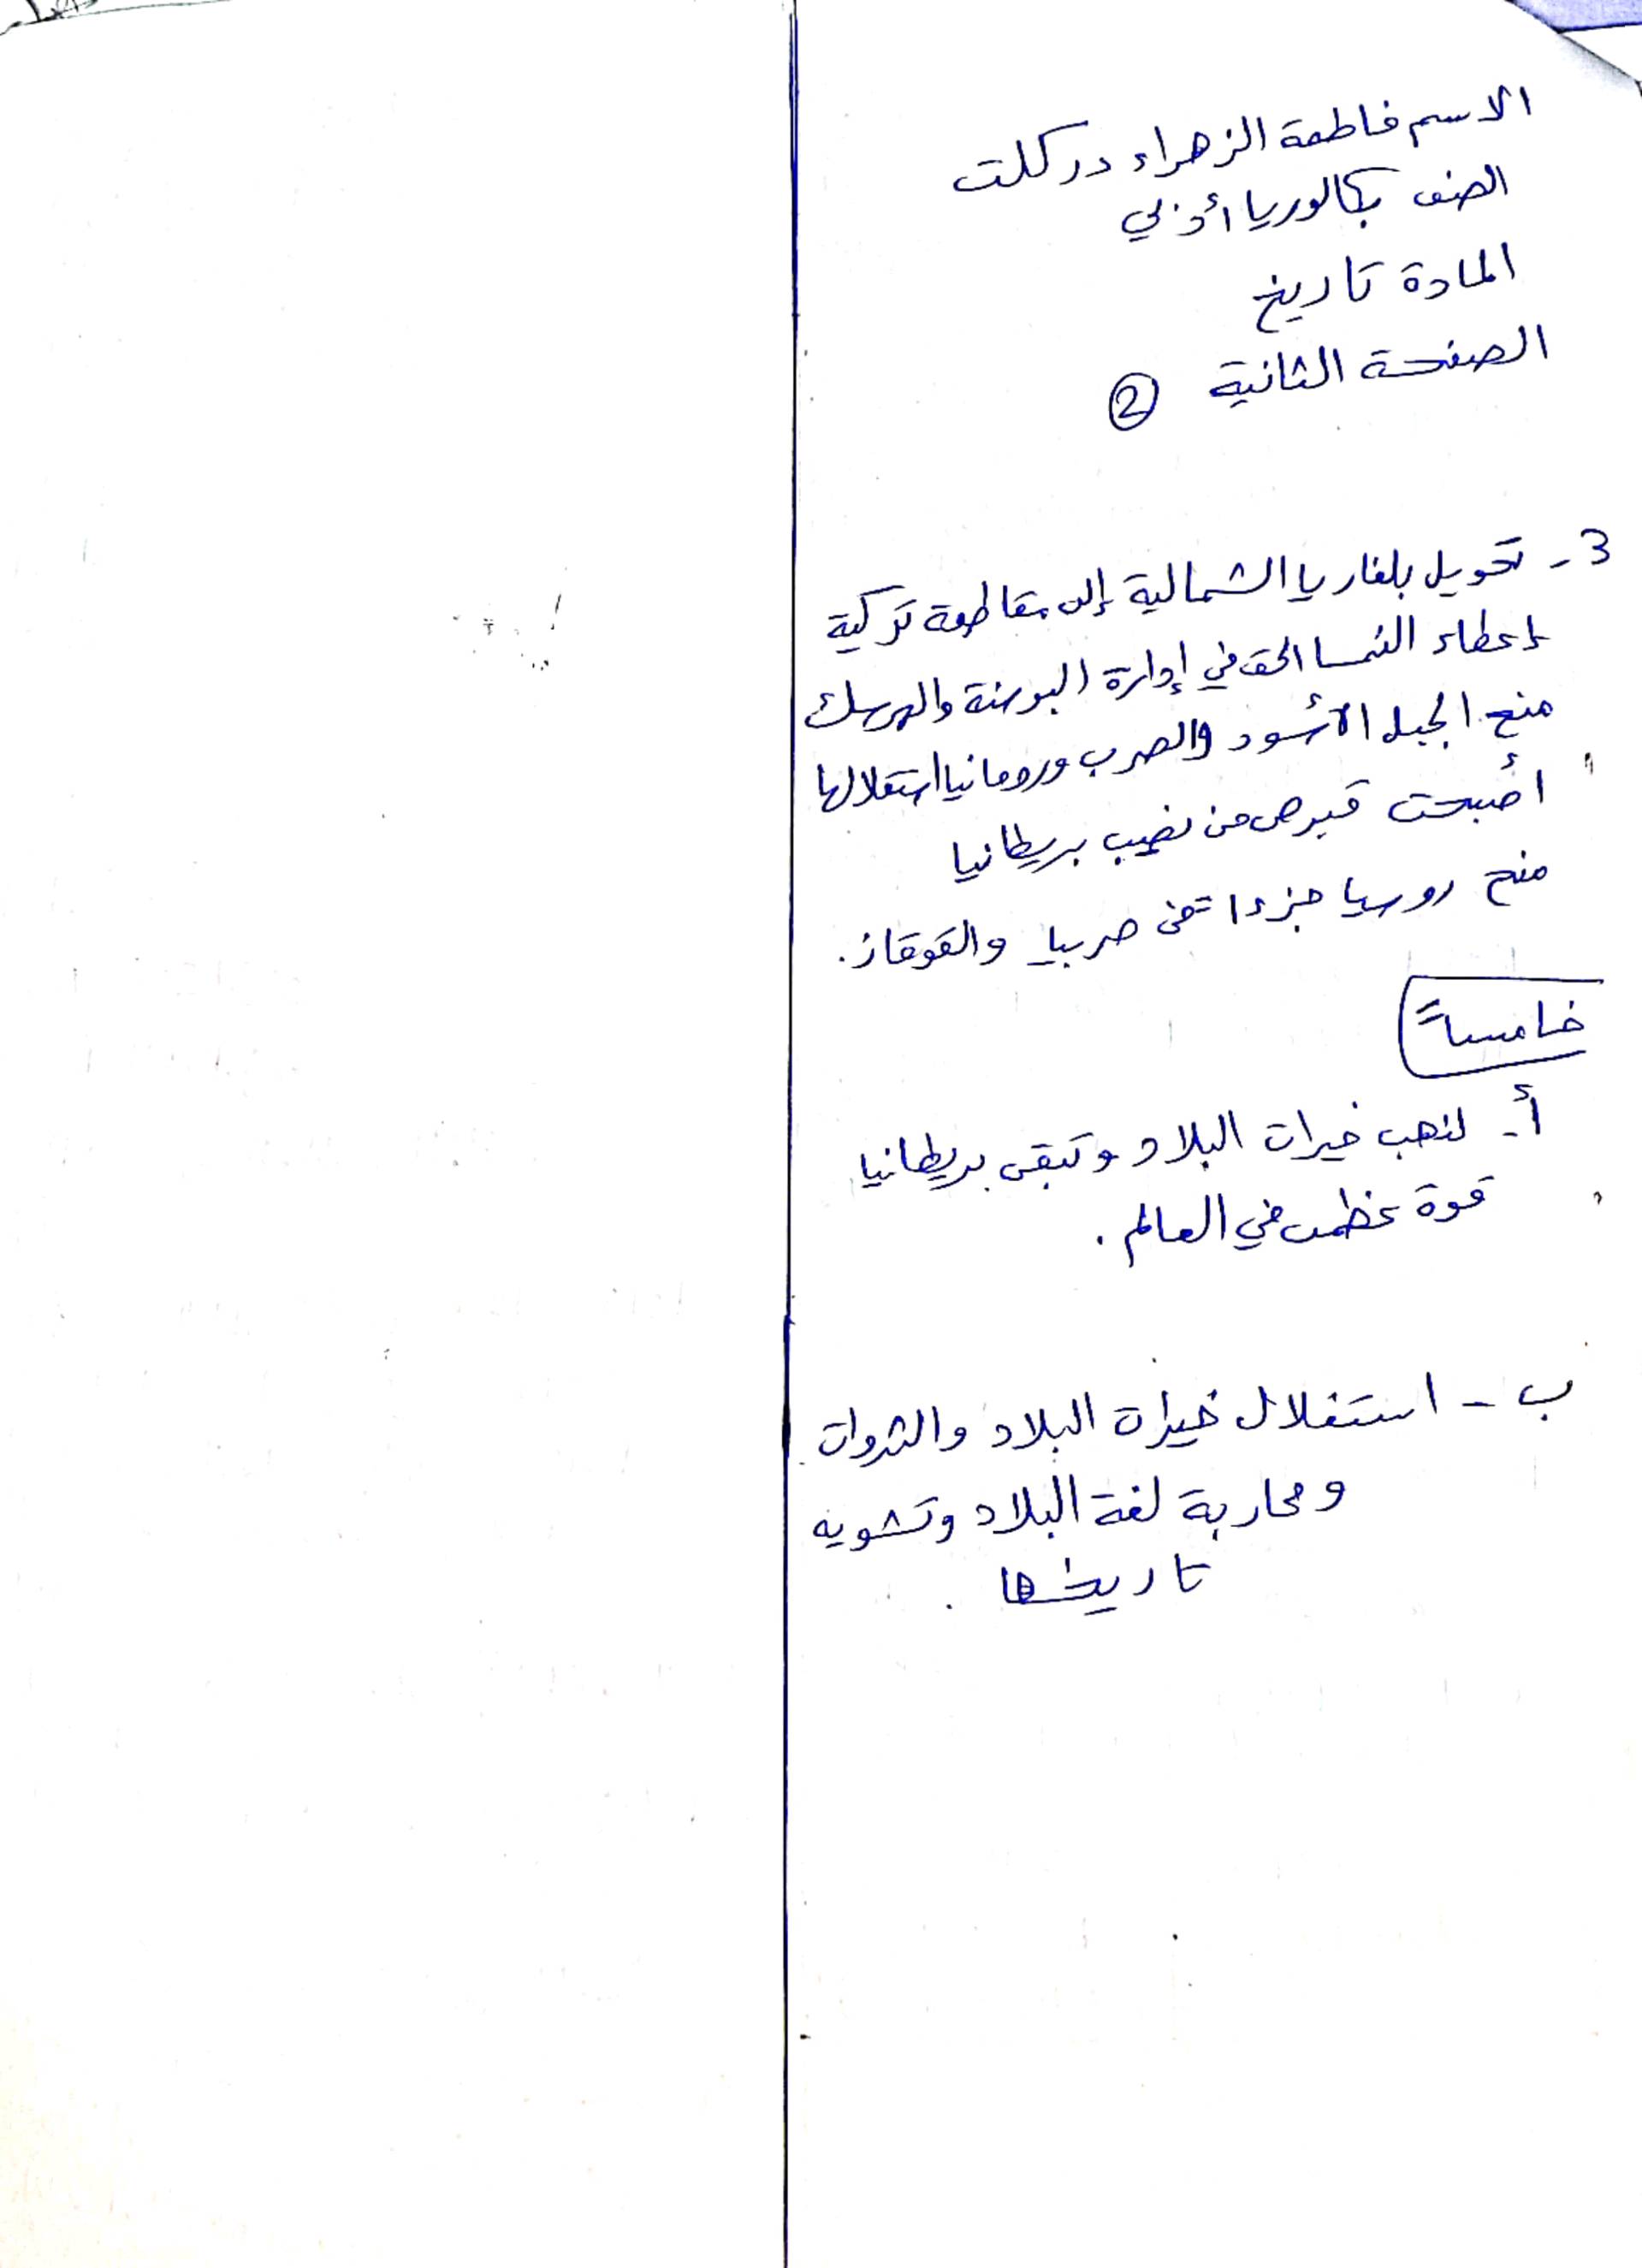 الاسم فاطمة الزهراء دركلت
الصف بكالوريا أدبي
المادة تاريخ
الصفحة الثانية 2
3 - تحويل بلغاريا الشمالية إلى مقاطعة تركية
إعطاء النمسا الحق في إدارة البوسنة والهرسك
منح الجبل الأسود والصرب ورومانيا استقلالها
أصبحت قبرص من نصيب بريطانيا
منح روسيا جزءا من صربيا والقوقاز.
خامساً
أ- لنهب خيرات البلاد وتبقى بريطانيا
قوة عظمى في العالم.
ب - استغلال خيرات البلاد والثروات
ومحاربة لغة البلاد وتشويه
تاريخها.